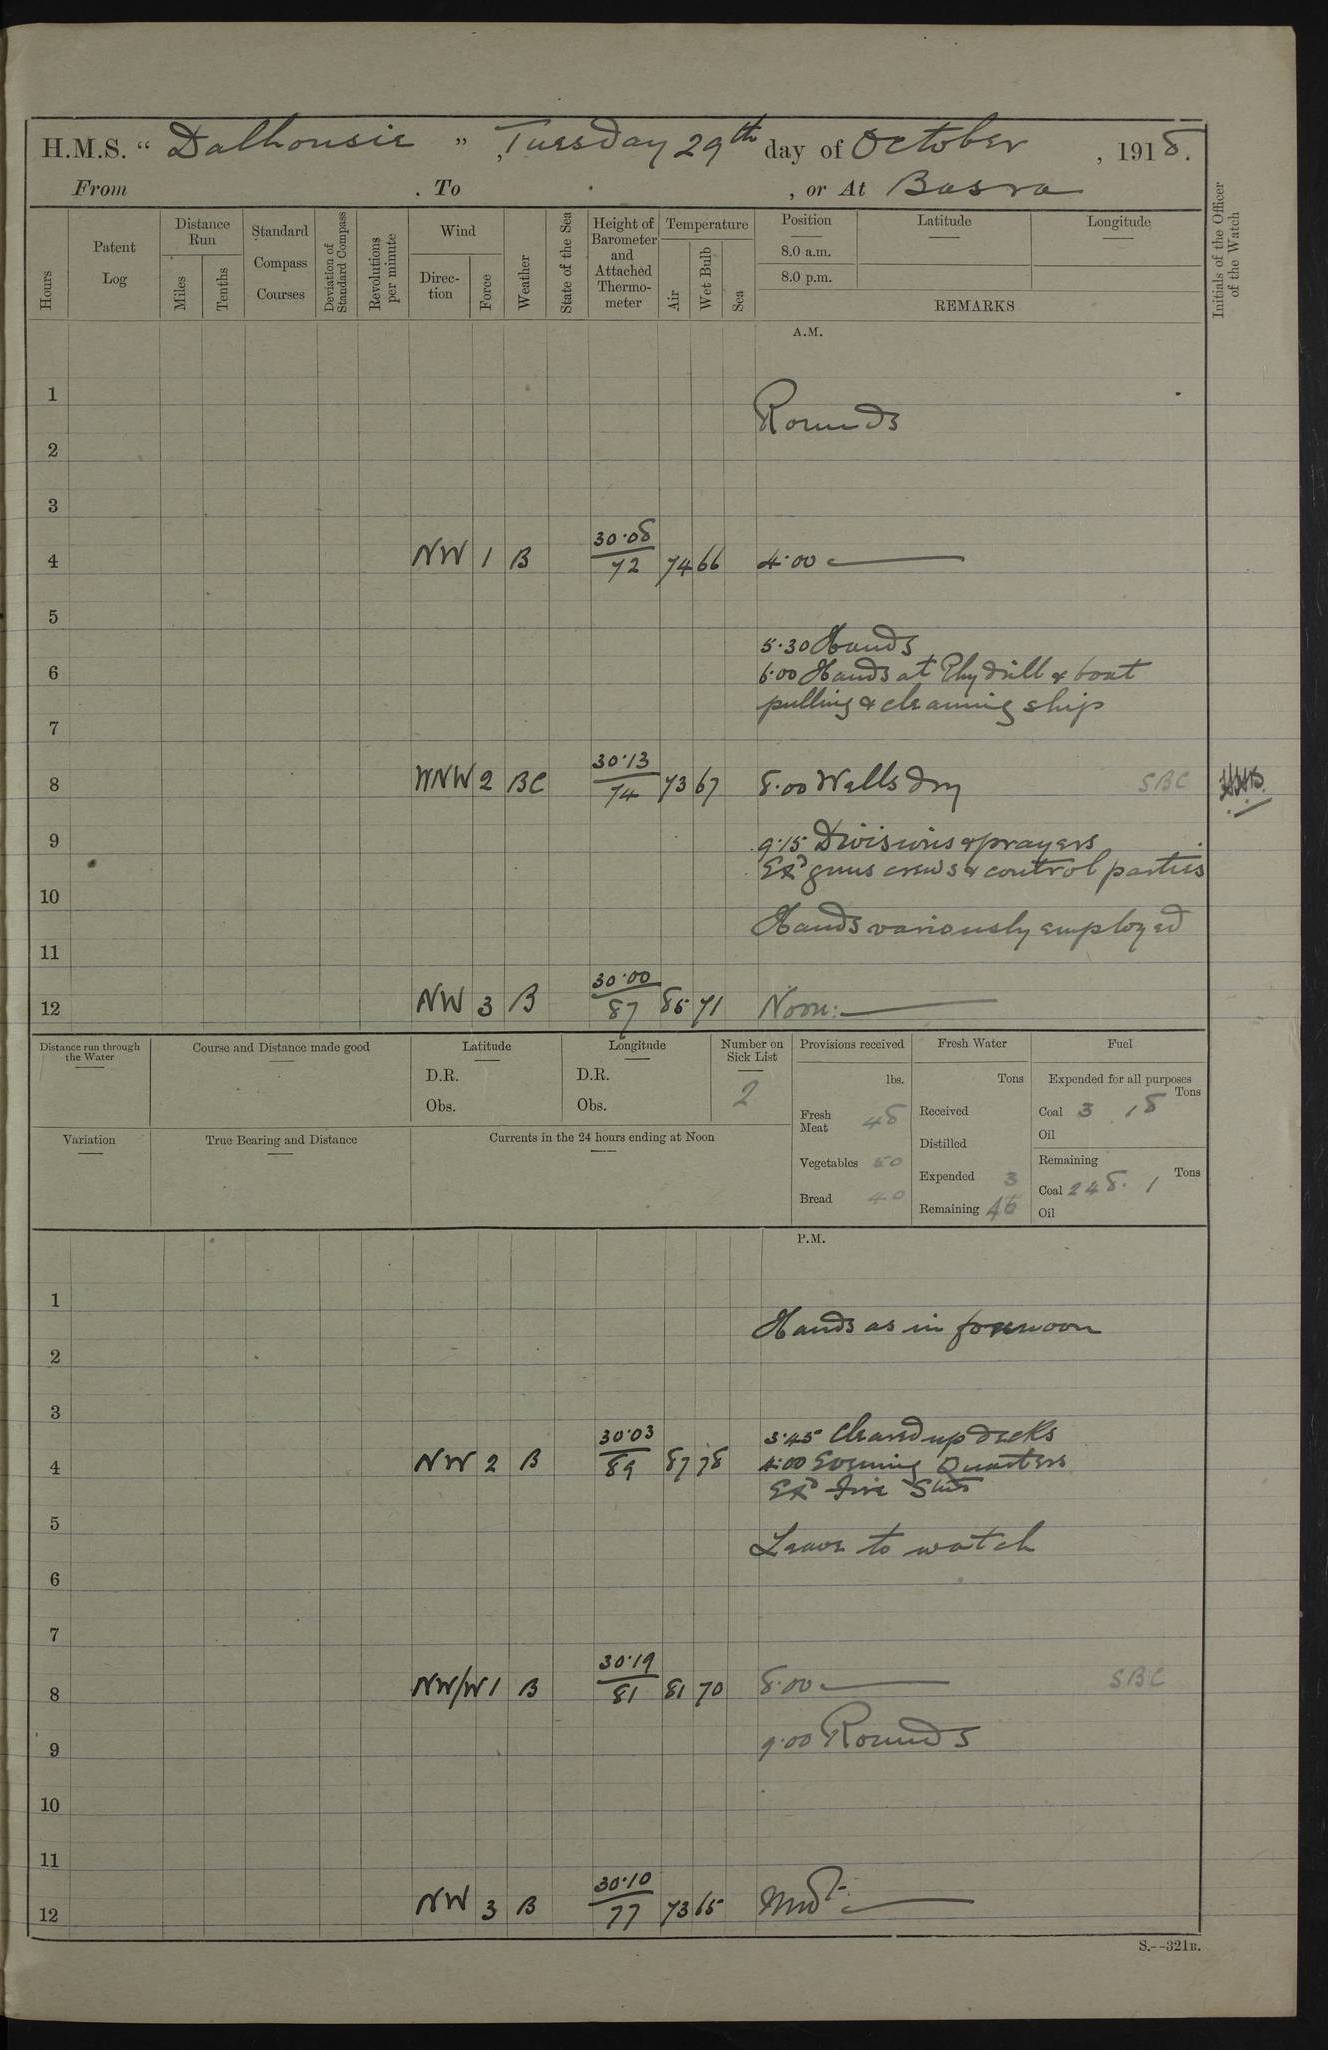 H.M.S. “ Dalhousie ”, Tuesday 29th day of October, 1918.
From . To , or At Basra
Hours
Patent Log
Distance Run
Miles
Tenths
Standard Compass Courses
Deviation of Standard Compass
Revolutions per minute
Wind
Direction
Force
Weather
State of the Sea
Height of Barometer and Attached Thermometer
Temperature
Air
Wet Bulb
Sea
Position
8.0 a.m.
8.0 p.m.
Latitude
Longitude
REMARKS
Initials of the Officer of the Watch
A.M.
1
Rounds
2
3
4 NW 1 B 30.08/72 74 66 4.00
5
5.30 Hands
6 6.00 Hands at Phy drill & boat
pulling & cleaning ship
7
8 WNW 2 BC 30.13/74 73 67 8.00 Wells dry SBC
9 9.15 Divisions & prayers
Exd guns crews & control parties
10
Hands variously employed
11
12 NW 3 B 30.00/87 85 71 Noon:
Distance run through the Water
Course and Distance made good
Latitude
D.R.
Obs.
Longitude
D.R.
Obs.
Number on Sick List
2
Provisions received
lbs.
Fresh Meat 48
Vegetables 50
Bread 40
Fresh Water
Tons
Received
Distilled
Expended 3
Remaining 46
Fuel
Expended for all purposes
Tons
Coal 3 .8
Oil
Remaining
Tons
Coal 248. 1
Oil
Variation
True Bearing and Distance
Currents in the 24 hours ending at Noon
P.M.
1
Hands as in forenoon
2
3
3.45 Cleared up decks
4 NW 2 B 30.03/89 87 78 4.00 Evening Quarters
Exd Fire Stns
5
Leave to watch
6
7
8 NW/W 1 B 30.19/81 81 70 8.00 SBC
9 9.00 Rounds
10
11
12 NW 3 B 30.10/77 73 65 Midt:
S.--321B.